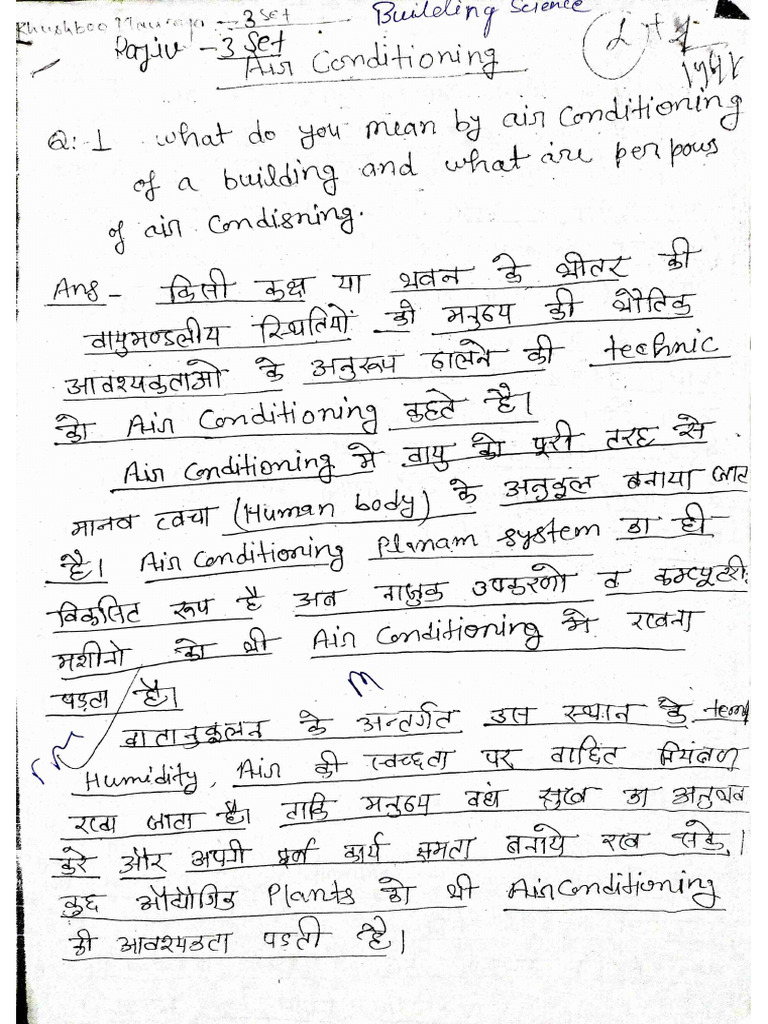 Khushboo Maurya - 3 Set
Building Science
Rajiv - 3 Set
Air Conditioning
Q: 1 what do you mean by air conditioning
of a building and what are perpous
of air condisning.
Ans - किसी कक्ष या भवन के भीतर की
वायुमण्डलीय स्थितियों को मनुष्य की भौतिक
आवश्यकताओ के अनुरूप ढालने की technic
को Air Conditioning कहते है।
Air Conditioning मे वायु को पूरी तरह से
मानव त्वचा (Human body) के अनुकूल बनाया जाता
है। Air Conditioning system का ही
विकसित रूप है अब नाजुक उपकरणो व कम्प्यूटरी
मशीनो को भी Air Conditioning मे रखना
पड़ता है।
वातानुकूलन के अन्तर्गत उस स्थान के temp
Humidity, Air की स्वच्छता पर वांछित नियंत्रण
रखा जाता है। ताकि मनुष्य वहां सुख का अनुभव
करे और अपनी पूर्ण कार्य क्षमता बनाये रख सके।
कुछ औद्योगिक Plants को भी Air Conditioning
की आवश्यकता पडती है।